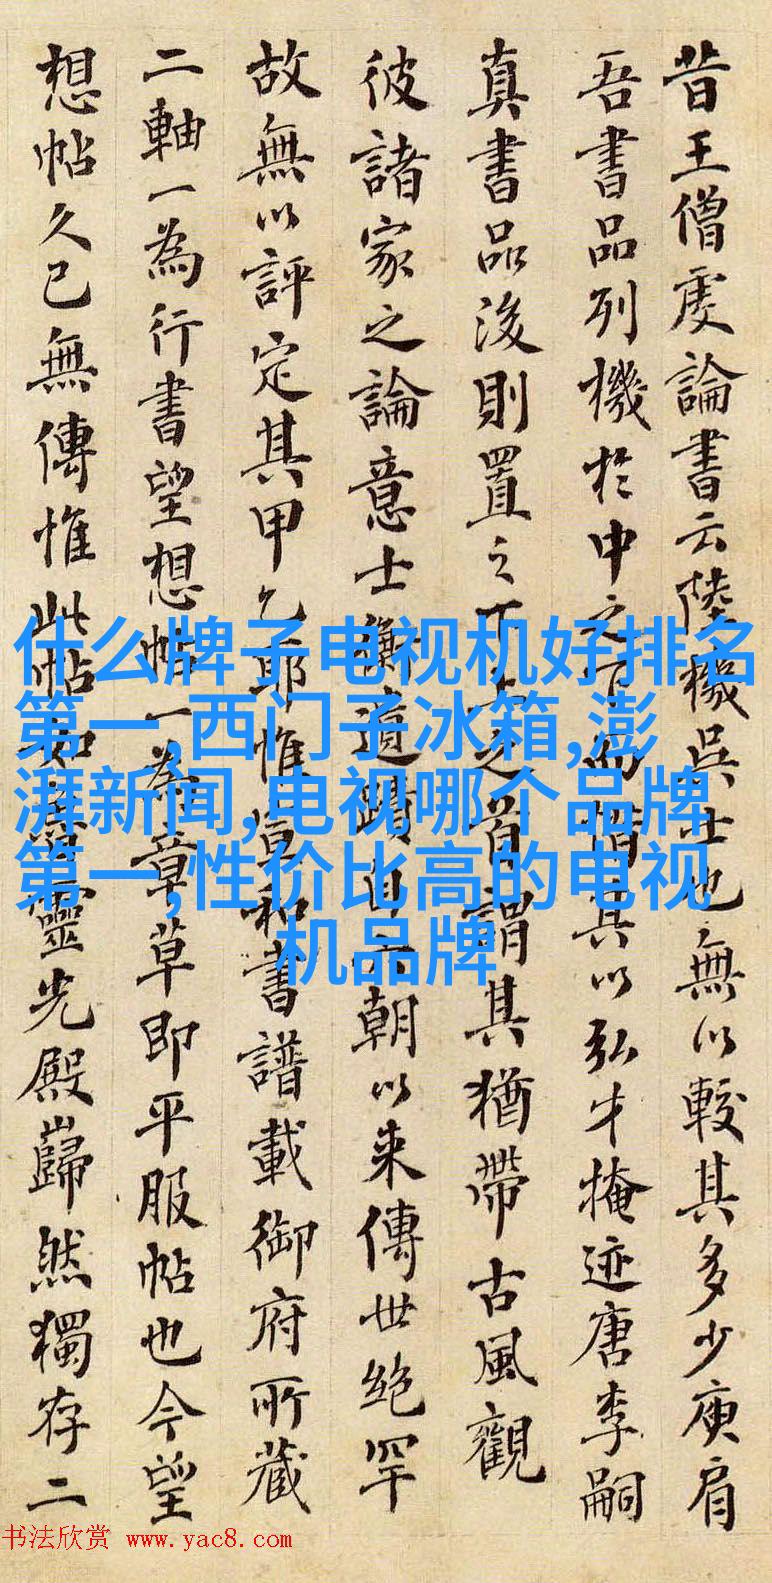 昔王僧虔論書云陸機吳士也無以較其多少庾肩
吾書品列機於中之而惜其以弘才掩迹唐李嗣
真書品後則置之下之首謂其猶帶古風觀
彼諸家之論意士衡遺蹟自六朝以来傳世絶罕
故無以評定其甲乙耶惟宣和書譜載御府所藏
二軸一為行書望想帖一為章草即平服帖也今望
想帖久已無傳惟此帖如魯靈光殿巋然獨存二
什么牌子电视机好排名
第一,西门子冰箱,澎
湃新闻,电视哪个品牌
第一,性价比高的电视
机品牌
书法欣赏 www.yac8.com